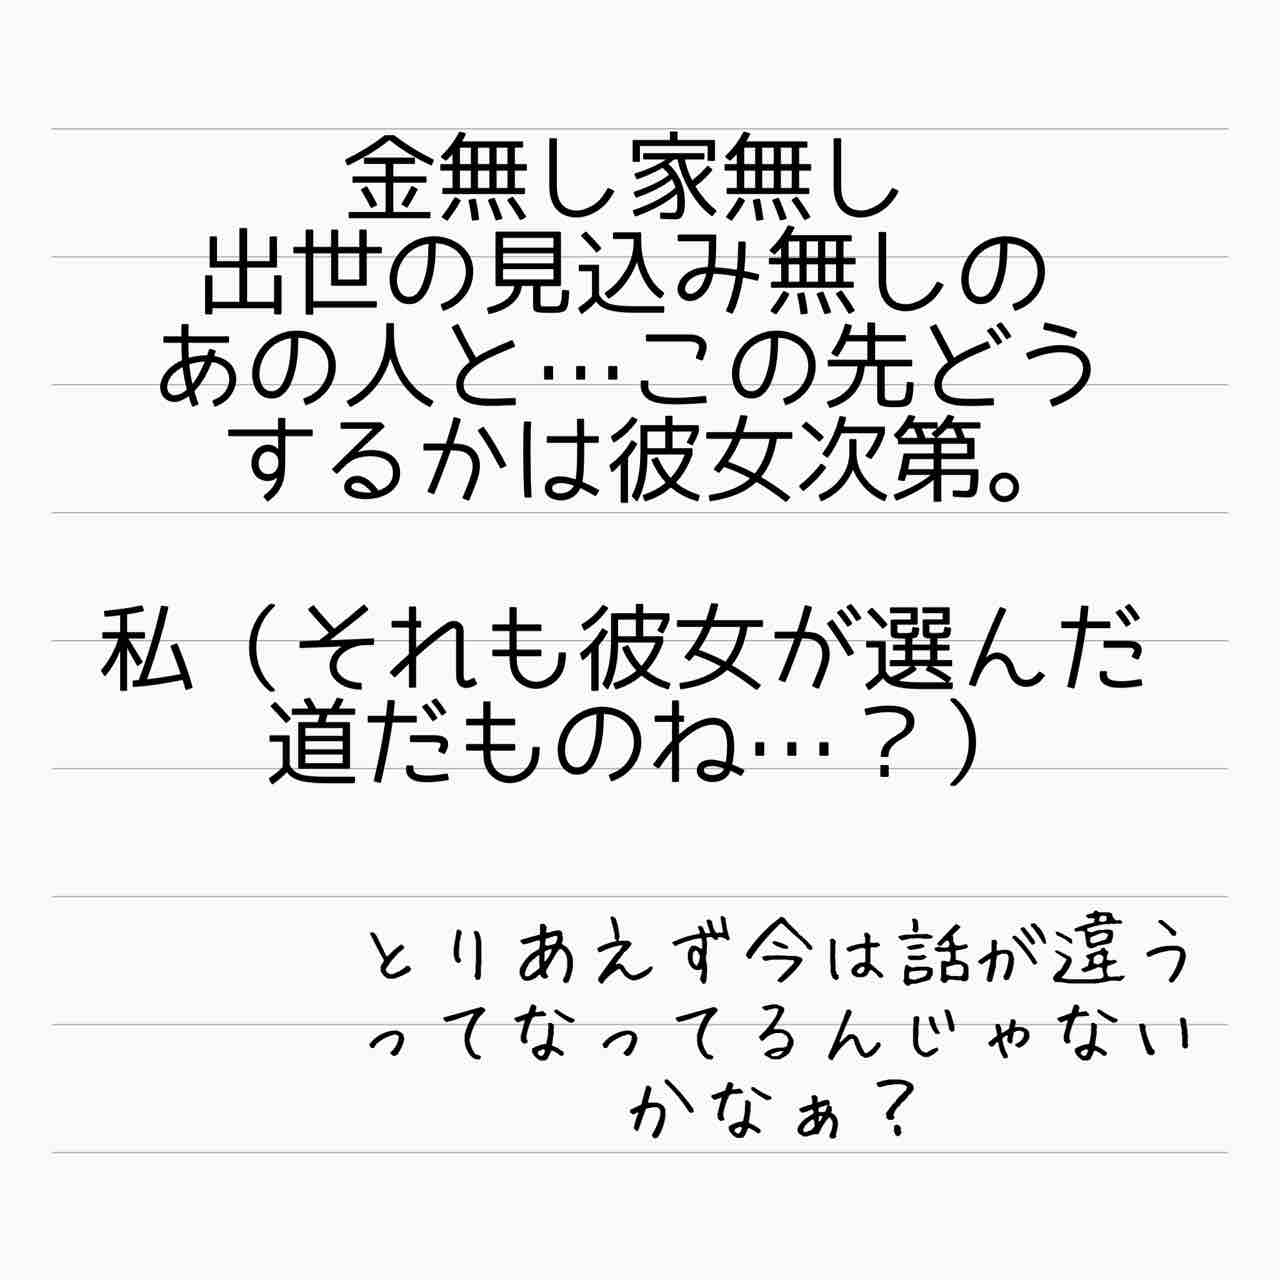 金無し家無し
出世の見込み無しの
あの人と…この先どう
するかは彼女次第。
私（それも彼女が選んだ
道だものね…？）
とりあえず今は話が違う
ってなってるんじゃない
かなぁ？